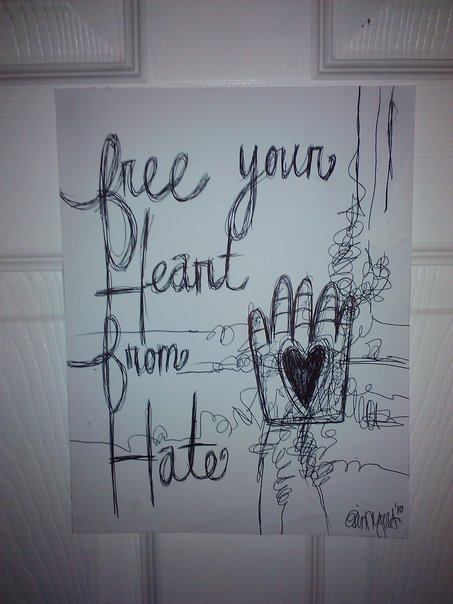 free your
Heart
from
Hate
'10